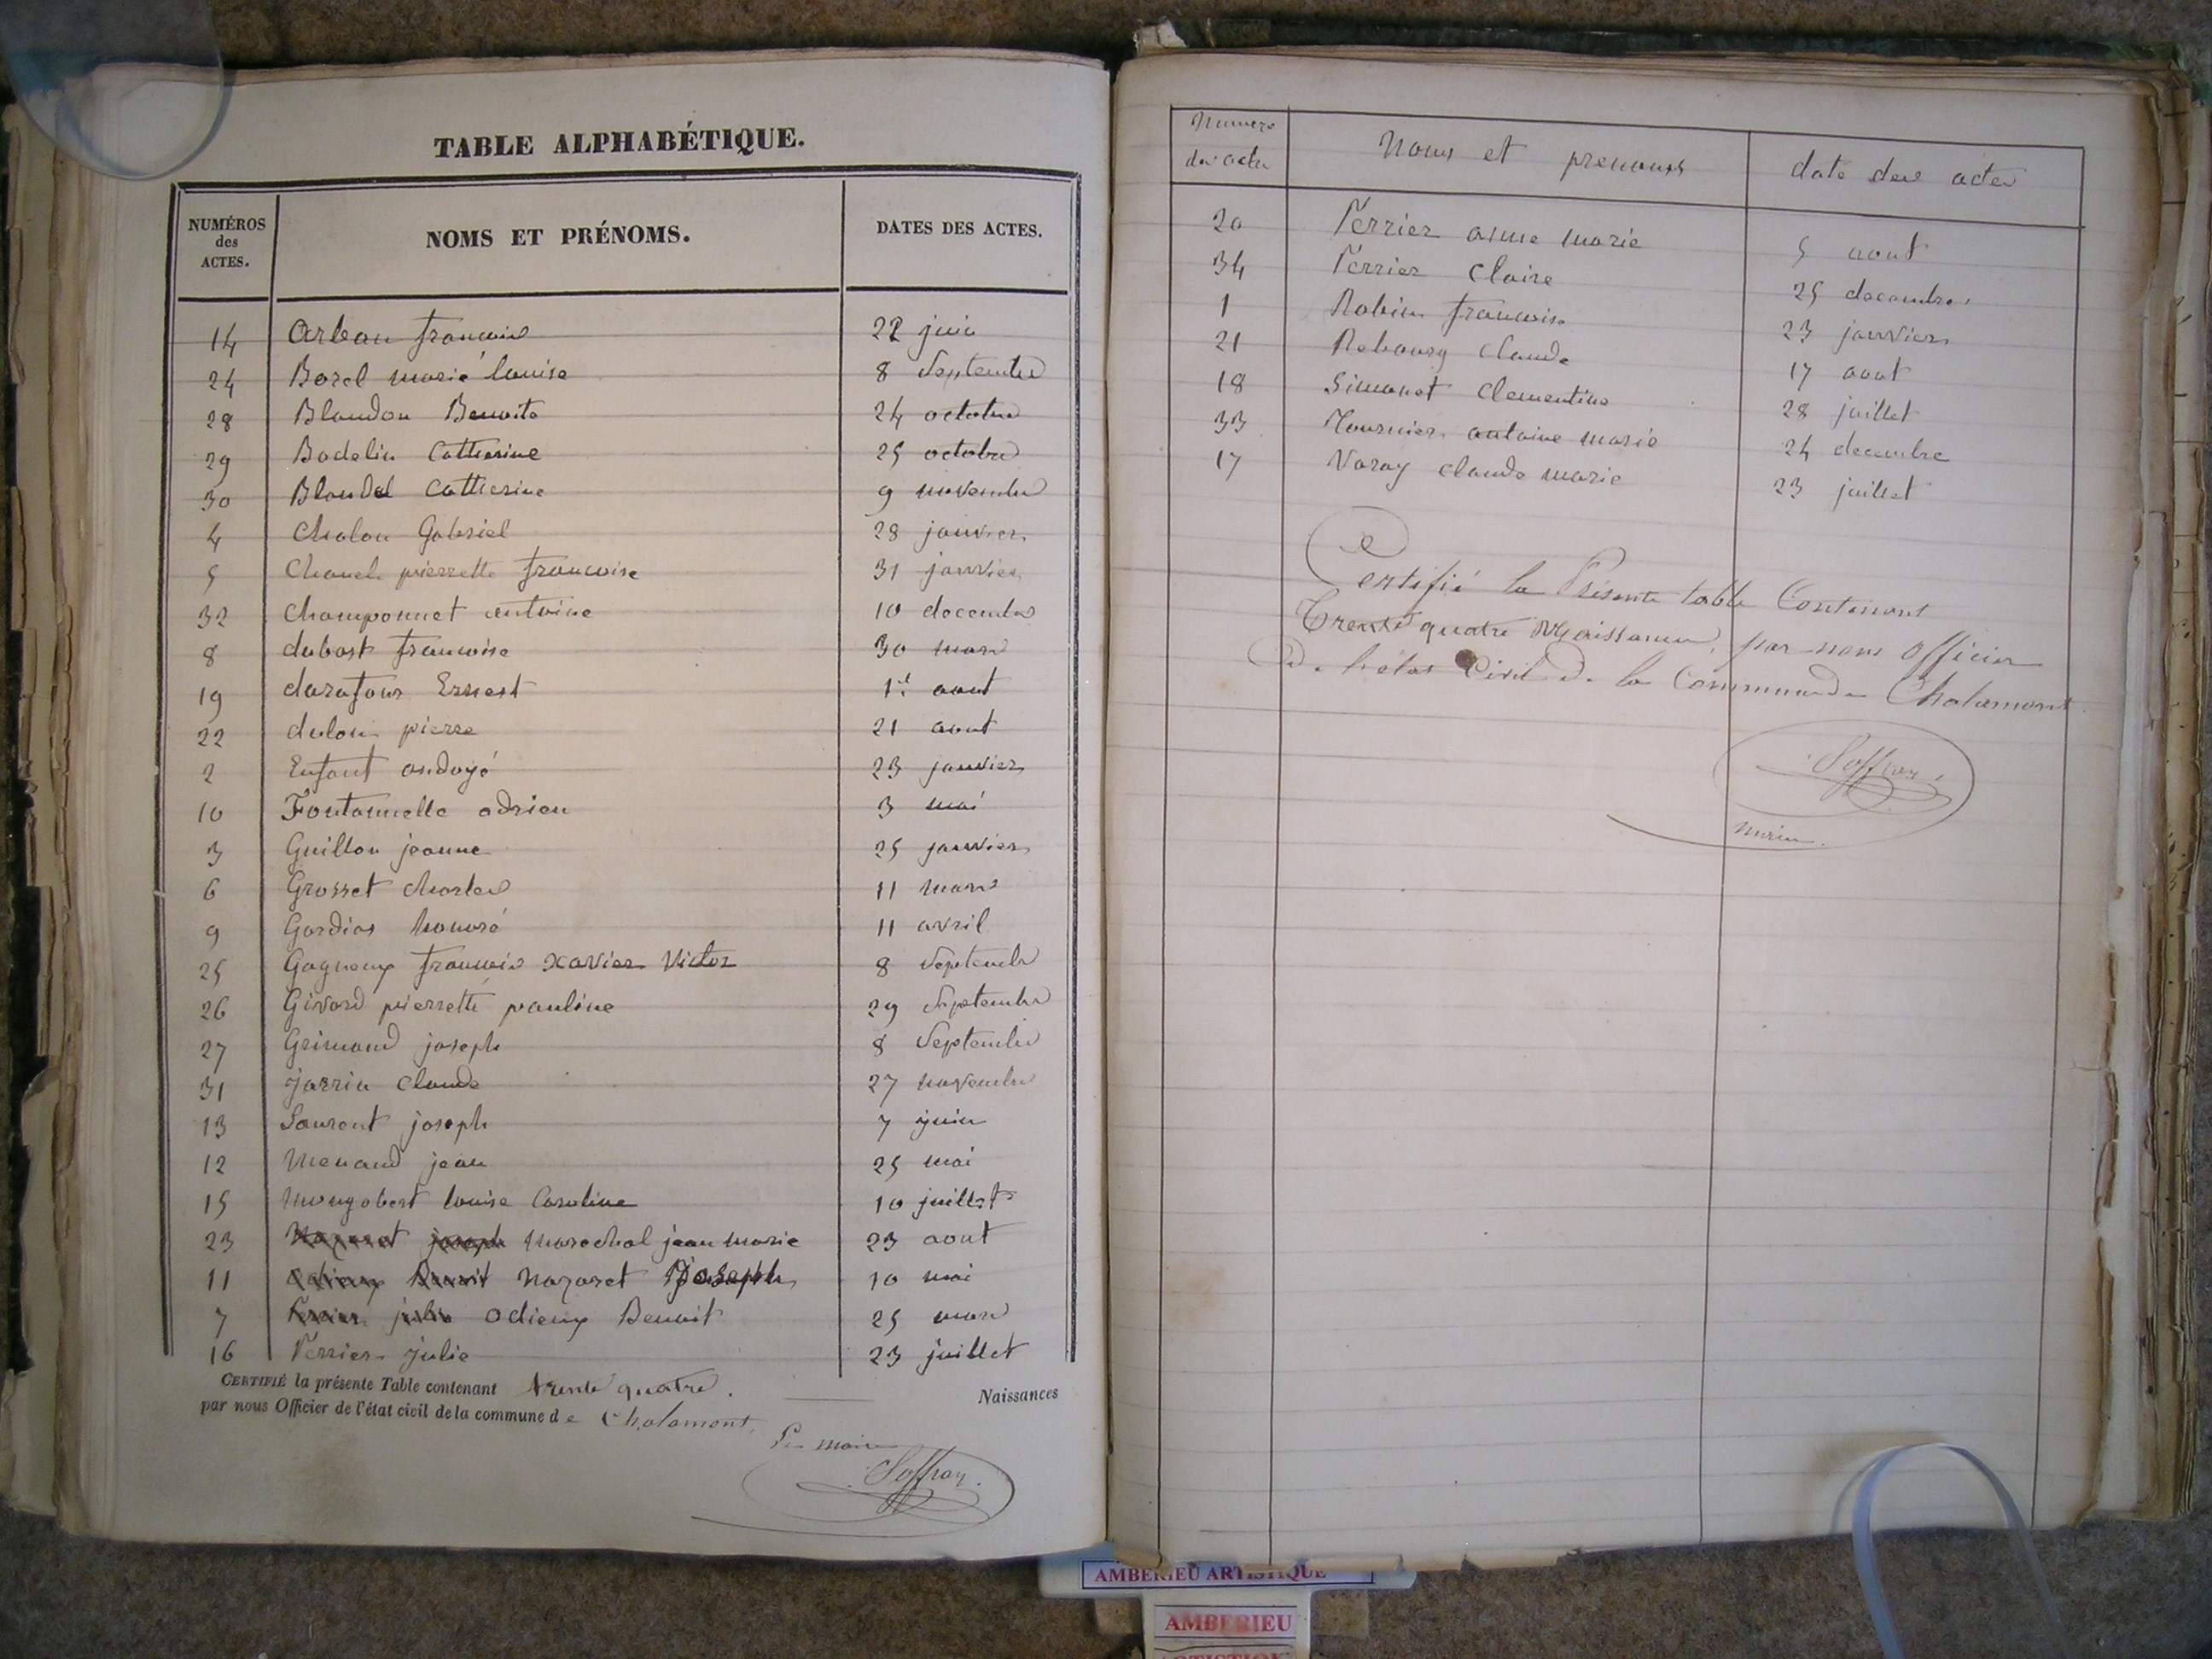 TABLE ALPHABÉTIQUE.
NUMÉROS des ACTES. NOMS ET PRÉNOMS. DATES DES ACTES.
14 Arban francois 22 juin
24 Borel marie louise 8 Septembre
28 Blandon Benoite 24 octobre
29 Badelin Catherine 25 octobre
30 Blondel Catherine 9 novembre
4 Chalon Gabriel 28 janvier
5 Chanel pierrette francoise 31 janvier
32 Champonnet antoine 10 decembre
8 dubost francoise 30 mars
19 darafour Ernest 1er aout
22 dulon pierre 21 aout
2 Enfant ondoyé 23 janvier
10 Fontannelle adrien 3 mai
3 Guillon jeanne 25 janvier
6 Grosset charles 11 mars
9 Gardias honoré 11 avril
25 Gagneux francois xavier Victor 8 Septembre
26 Givord pierrette pauline 29 Septembre
27 Grimand joseph 8 Septembre
31 jarrin claude 27 novembre
13 Laurent joseph 7 juin
12 Menand jean 25 mai
15 mongobert louise Caroline 10 juillet
23 Nazaret joseph marechal jean marie 23 aout
11 odieux Benoit nazaret Joseph 10 mai
7 Perrier julie odieux Benoit 25 mars
16 Perrier julie 23 juillet
CERTIFIÉ la présente Table contenant trente quatre. Naissances
par nous Officier de l'état civil de la commune de Chalamont,
Le maire
Soffray
Numero des actes Noms et prenoms date des actes
20 Perrier anne marie 5 aout
34 Perrier Claire 25 decembre
1 Robin francoise 23 janvier
21 Rebourg claude 17 aout
18 Simonet Clementine 28 juillet
33 Tournier antoine marie 24 decembre
17 Varay claude marie 23 juillet
Certifié la Présente table Contenant
Trente quatre Naissances, par nous officier
De l'état Civil De la Commune de Chalamont
Soffray
maire.
AMBERIEU ARTISTIQUE
AMBERIEU
ARTISTIQUE